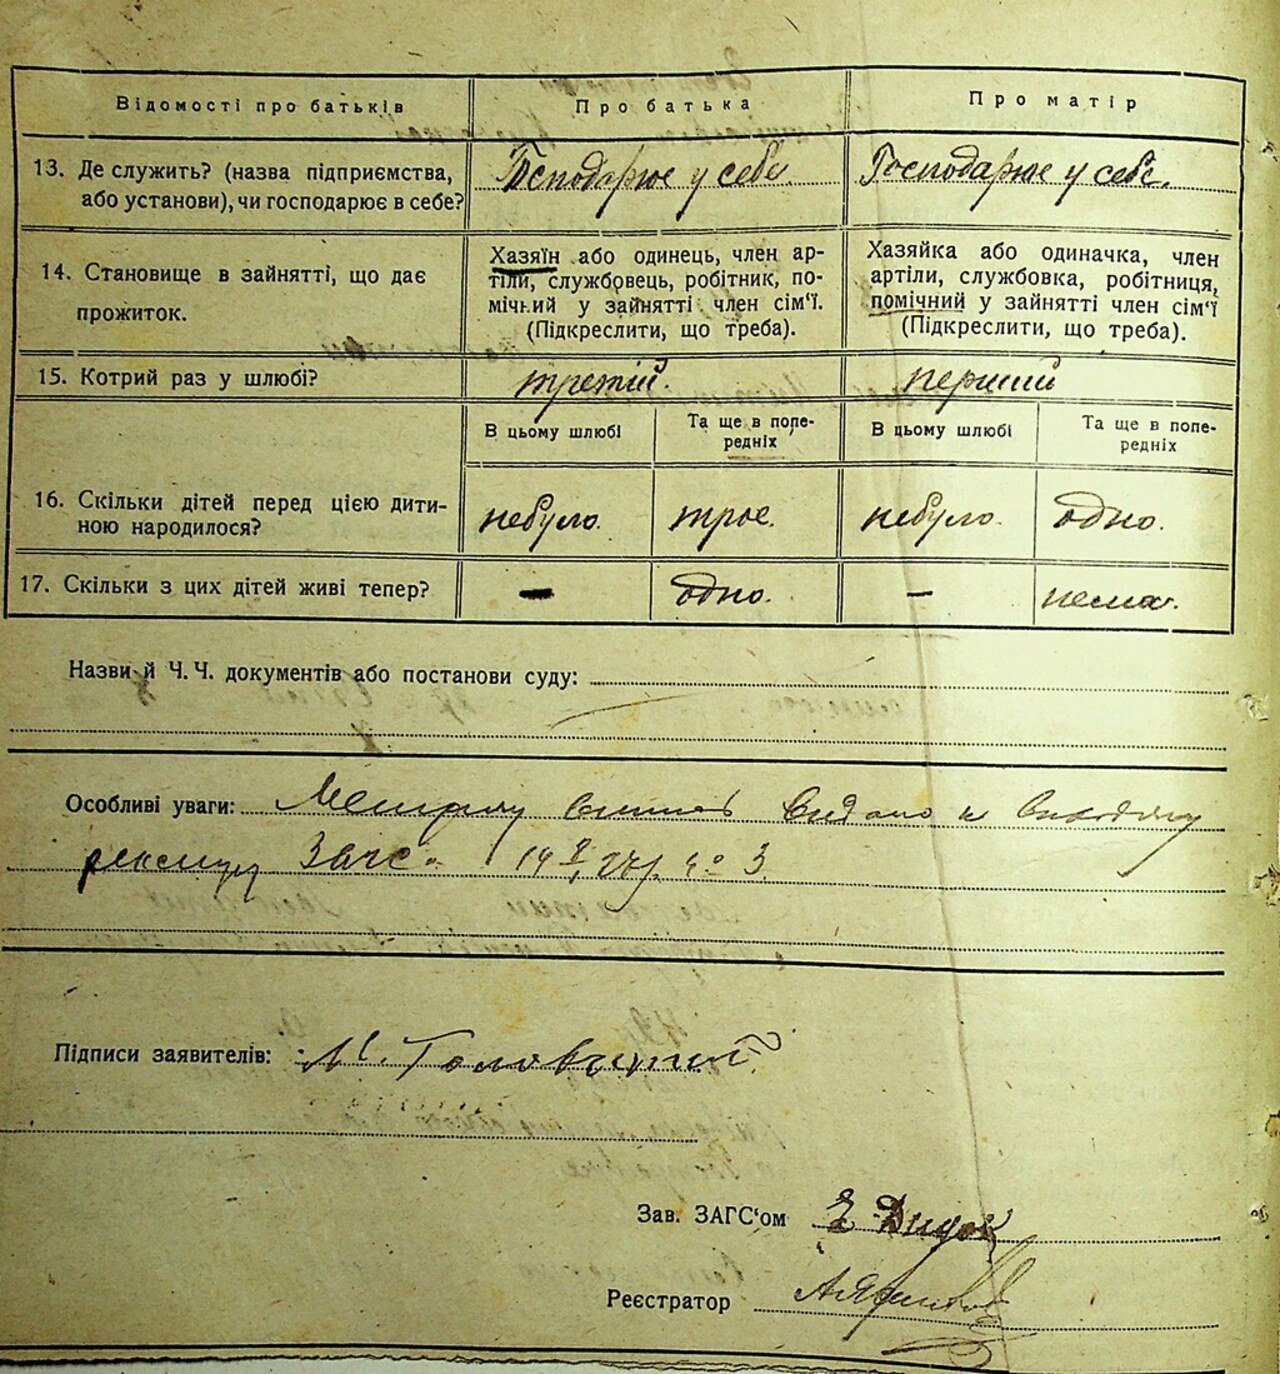 Відомості про батьків
Про батька
Про матір
13. Де служить? (назва підприємства,
або установи), чи господарює в себе?
Господарює у себе.
Господарює у себе.
14. Становище в зайнятті, що дає
прожиток.
Хазяїн або одинець, член ар-
тіли, службовець, робітник, по-
мічний у зайнятті член сім'ї.
(Підкреслити, що треба).
Хазяйка або одиначка, член
артіли, службовка, робітниця,
помічний у зайнятті член сім'ї
(Підкреслити, що треба).
15. Котрий раз у шлюбі?
третій.
перший
В цьому шлюбі
Та ще в попе-
редніх
В цьому шлюбі
Та ще в попе-
редніх
16. Скільки дітей перед цією дити-
ною народилося?
небуло.
трое.
небуло.
одно.
17. Скільки з цих дітей живі тепер?
—
одно.
—
нема.
Назви й Ч. Ч. документів або постанови суду:
Особливі уваги: Метрику видано
Загс
Підписи заявителів:
Зав. ЗАГС'ом
Реєстратор